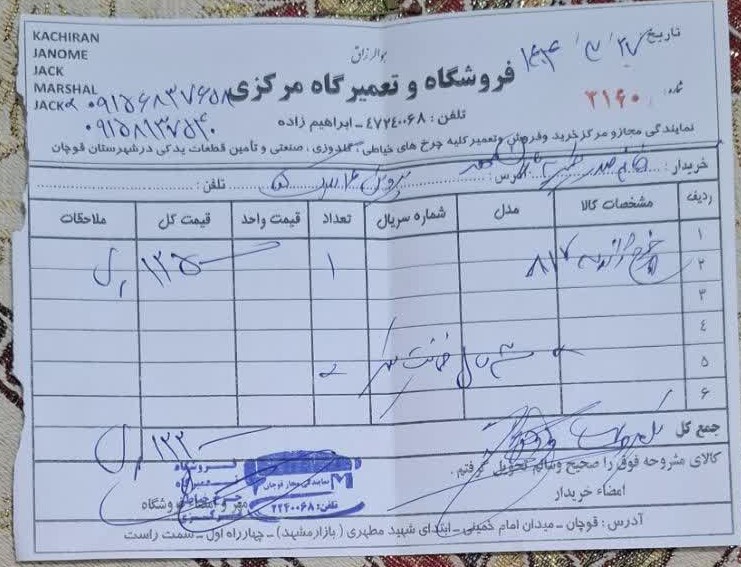 KACHIRAN
JANOME
JACK
MARSHAL
JACK
۰۹۱۵۶۸۳۷۶۵۸
۰۹۱۵۸۱۳۷۵۴۰
هوالرزاق
فروشگاه و تعمیرگاه مرکزی
تلفن : ۴۷۲۴۰۰۶۸ - ابراهیم زاده
تاریخ ۱۴۰۴ / ۳ / ۲۷
شماره: ۳۱۶۰
نمایندگی مجاز و مرکز خرید وفروش وتعمیر کلیه چرخ های خیاطی ، گلدوزی ، صنعتی و تأمین قطعات یدکی در شهرستان قوچان
خریدار : خانم آدرس : تلفن :
ردیف مشخصات کالا مدل شماره سریال تعداد قیمت واحد قیمت کل ملاحظات
۱
۲ چرخ ژانومه ۸۱۷ ۱ ۱۳۵
۳
۴
۵ سال ضمانت
۶
جمع کل ۱۳۳
کالای مشروحه فوق را صحیح وسالم تحویل گرفتم.
امضاء خریدار
مهر و امضاء فروشگاه
فروشگاه
تعمیرگاه
چرخ خیاطی
مرکزی
نمایندگی مجاز قوچان
تلفن: ۲۲۴۰۰۶۸
آدرس : قوچان - میدان امام خمینی - ابتدای شهید مطهری ( بازار مشهد ) - چهارراه اول - سمت راست